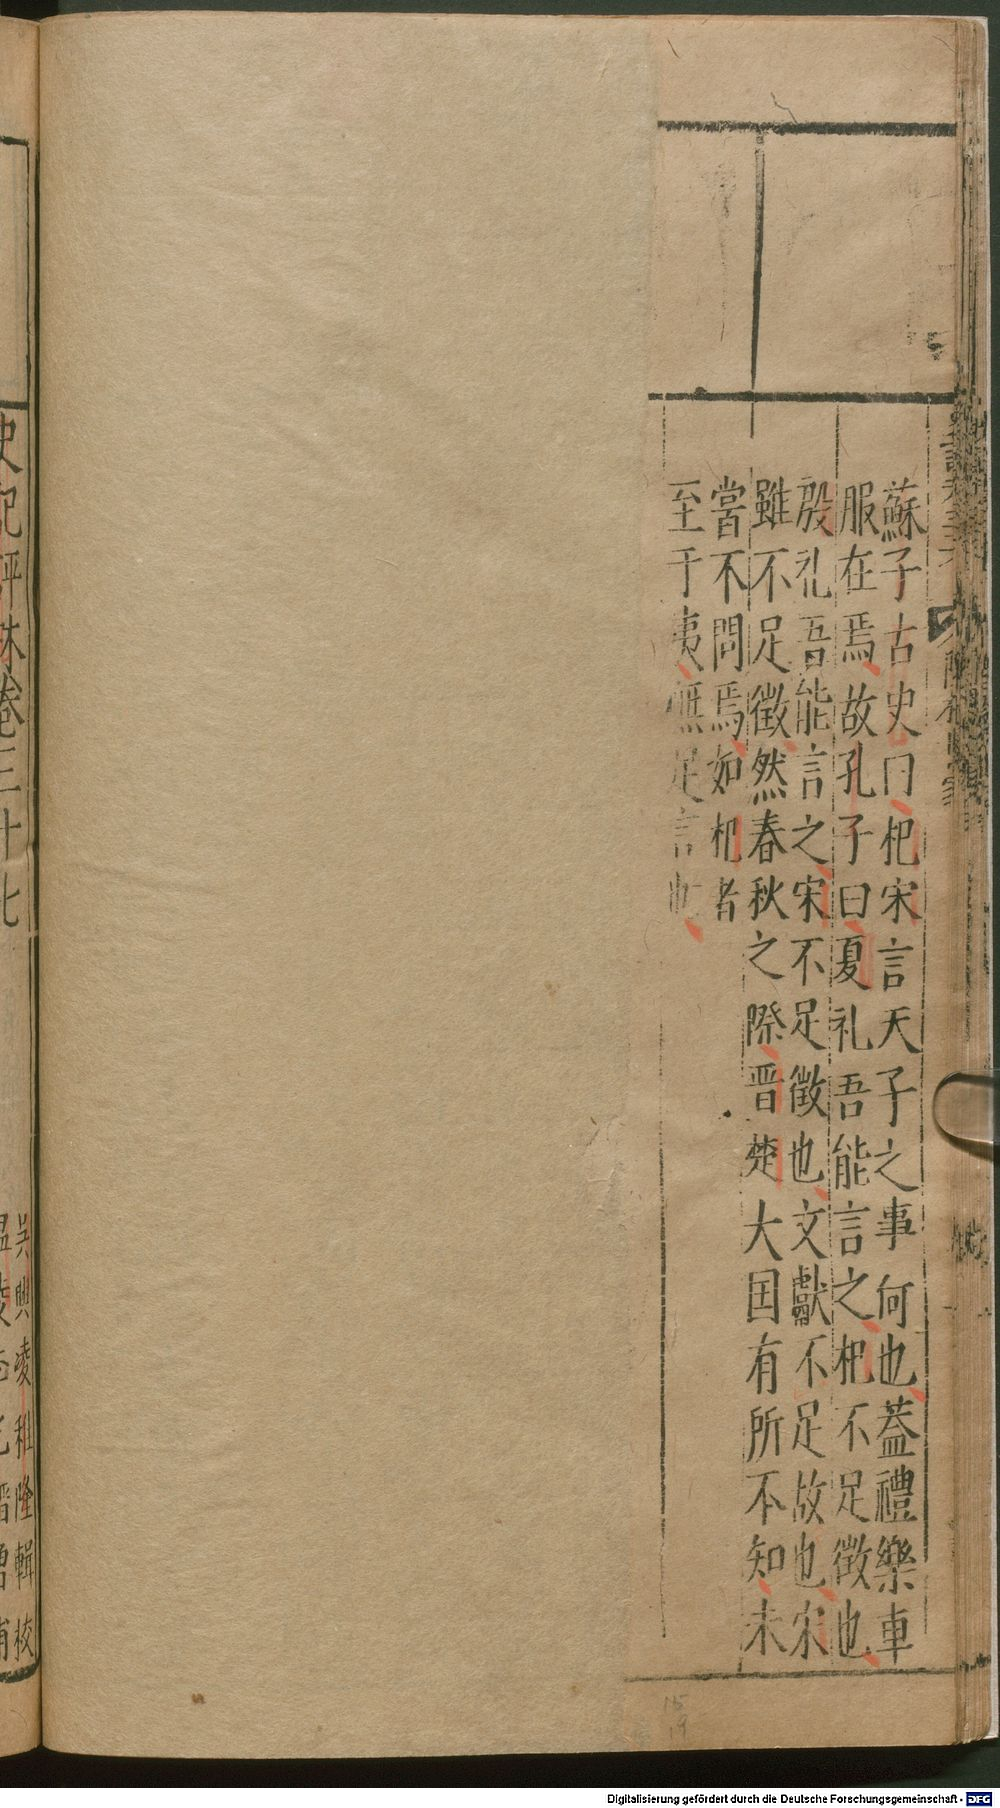 蘇子古史曰杞宋言天子之事何也蓋禮樂車
服在焉故孔子曰夏礼吾能言之杞不足徵也
殷礼吾能言之宋不足徵也文獻不足故也宋
雖不足徵然春秋之際晋楚大国有所不知未
嘗不問焉如杞者
至于夷無足言也
史記評林卷三十七
吳興凌稚隆輯校
溫陵李光縉增補
Digitalisierung gefördert durch die Deutsche Forschungsgemeinschaft - DFG